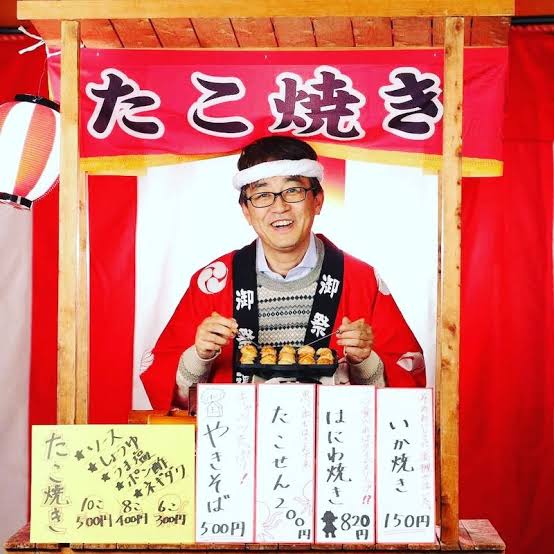 たこ焼き
御祭
御祭
たこ焼き
★ソース
★しょうゆ
★うま塩
★ポン酢
★ネギダリ
10こ 500円
8こ 400円
6こ 300円
やきそば
500円
たこせん200円
はにわ焼き
820円
いか焼き
150円